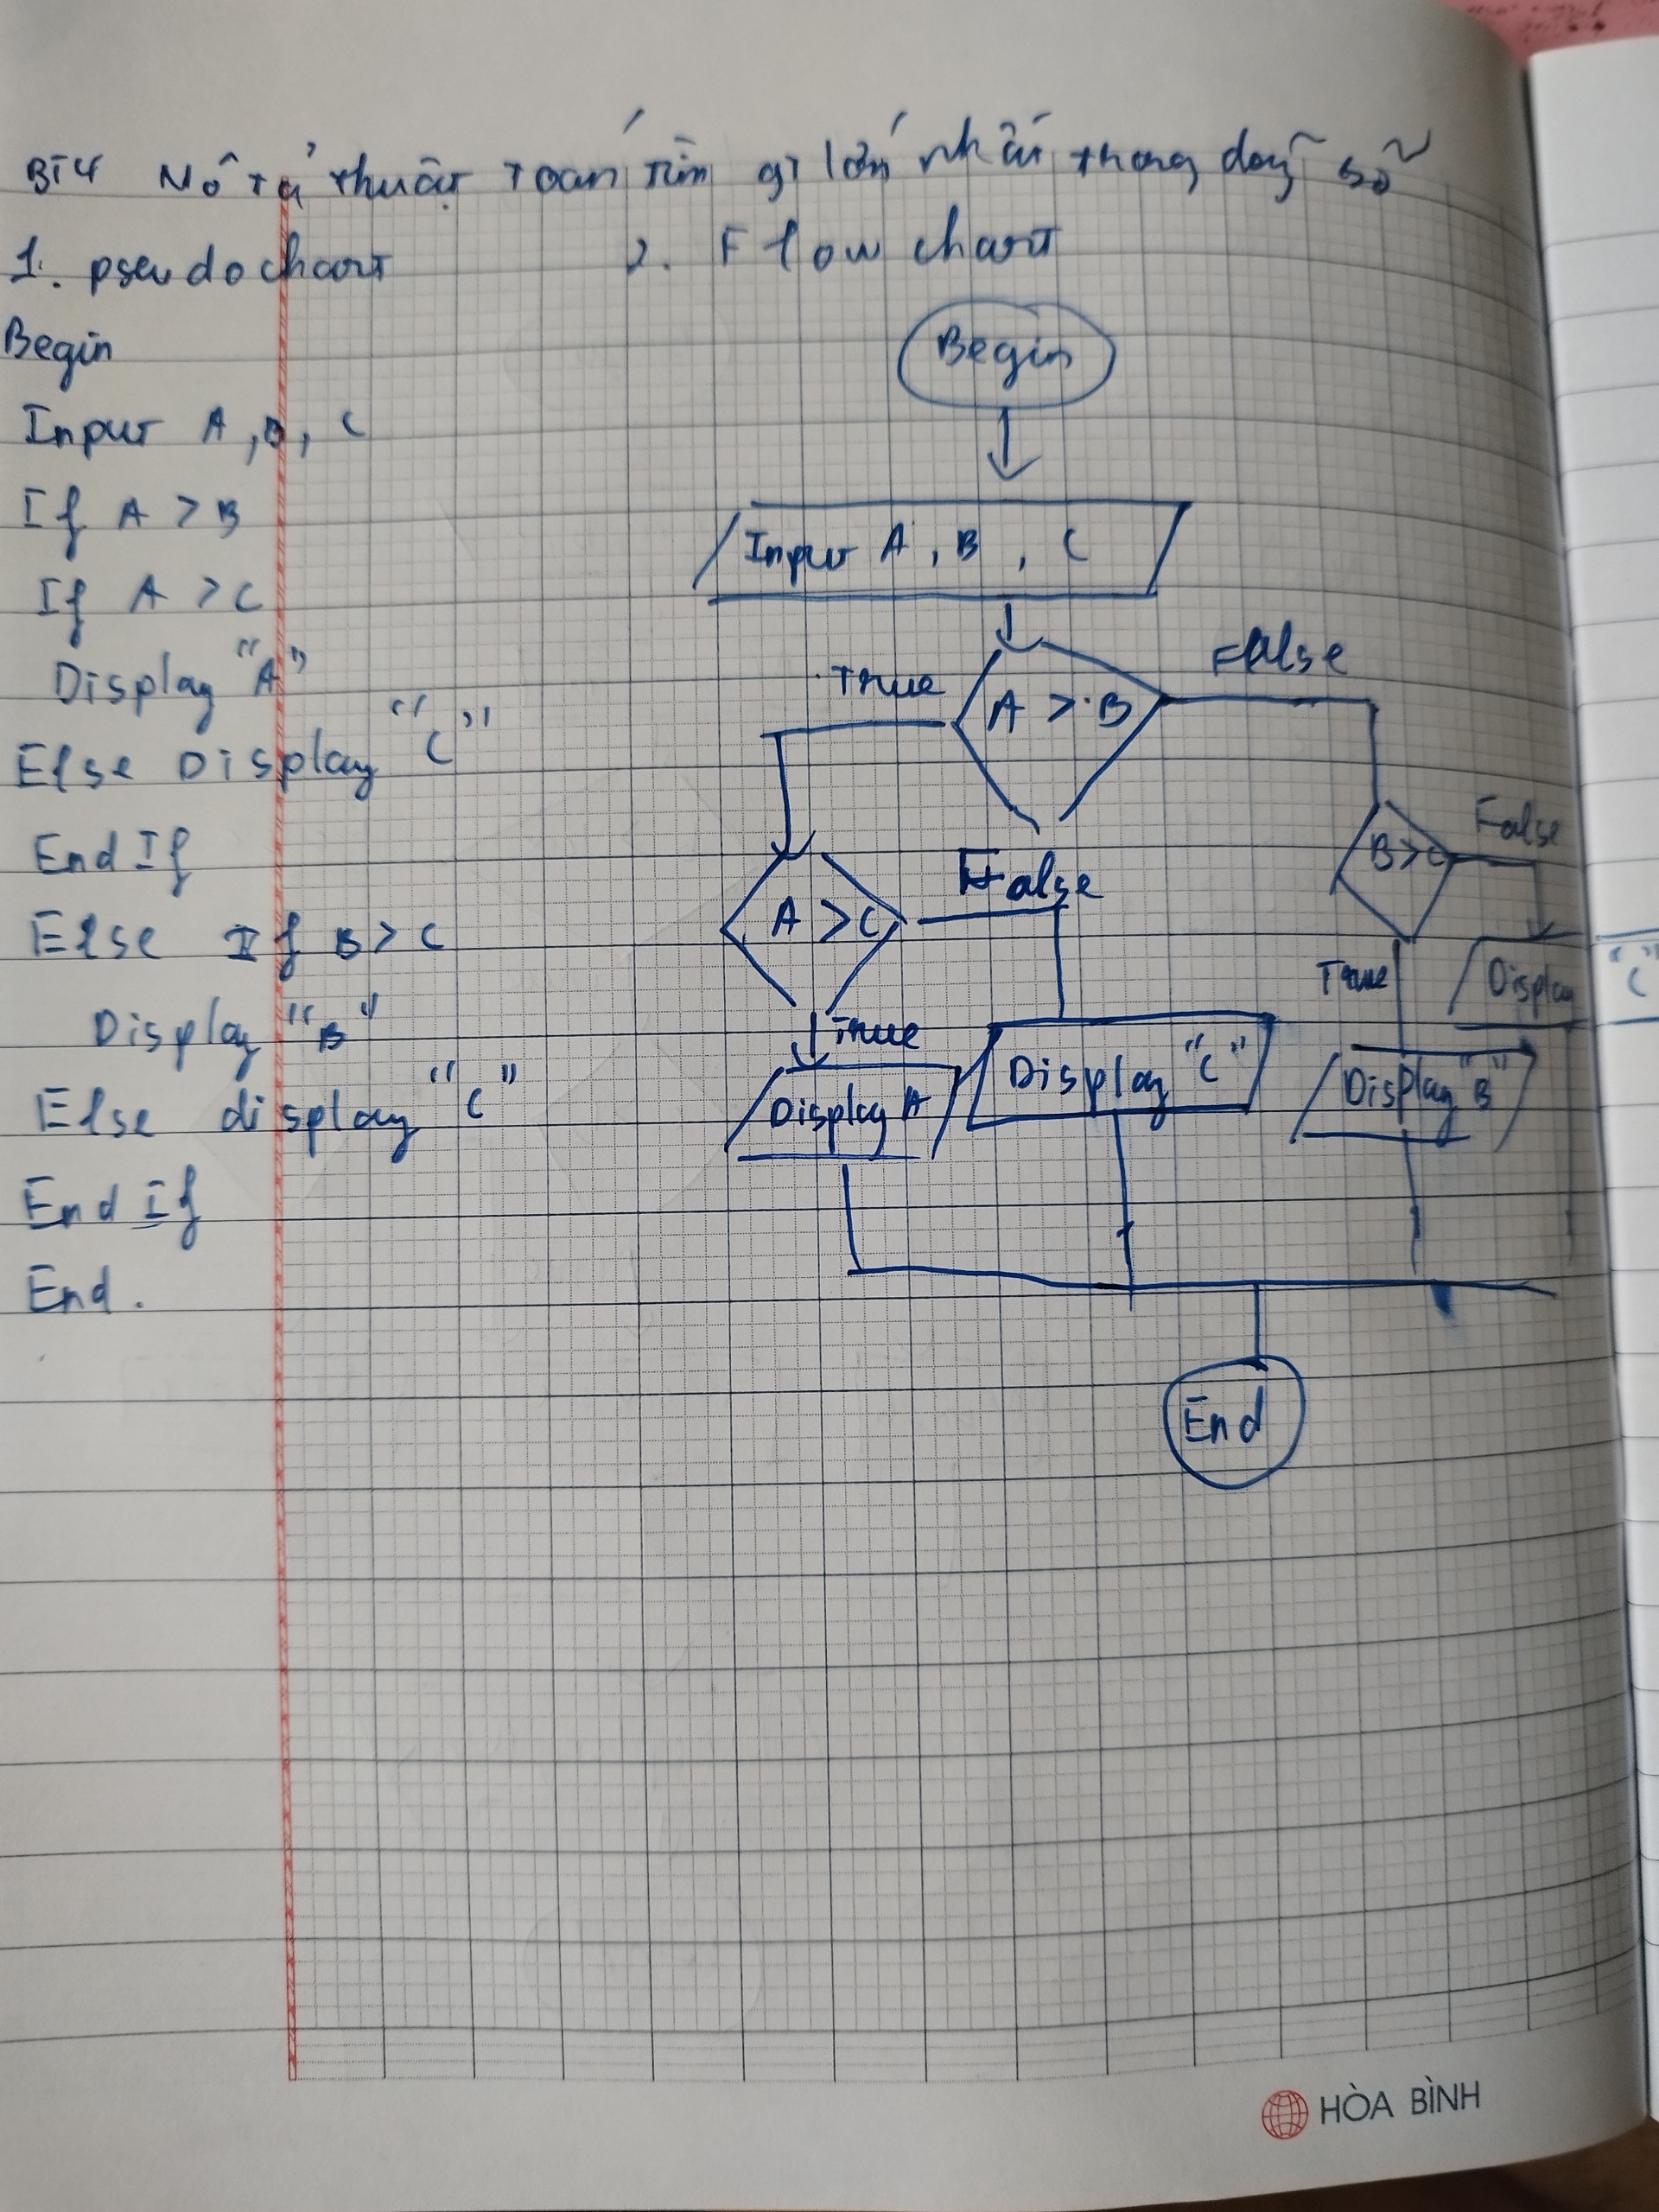 BT4 Mô tả thuật toán tìm gt lớn nhất trong dãy số
1. pseudochart
Begin
Input A, B, C
If A > B
If A > C
Display "A"
Else Display "C"
End If
Else If B > C
Display "B"
Else display "C"
End If
End.
2. Flow chart
Begin
Input A, B, C
A > B
True
False
A > C
False
True
Display A
Display "C"
B > C
False
True
Display "C"
Display "B"
End
HÒA BÌNH